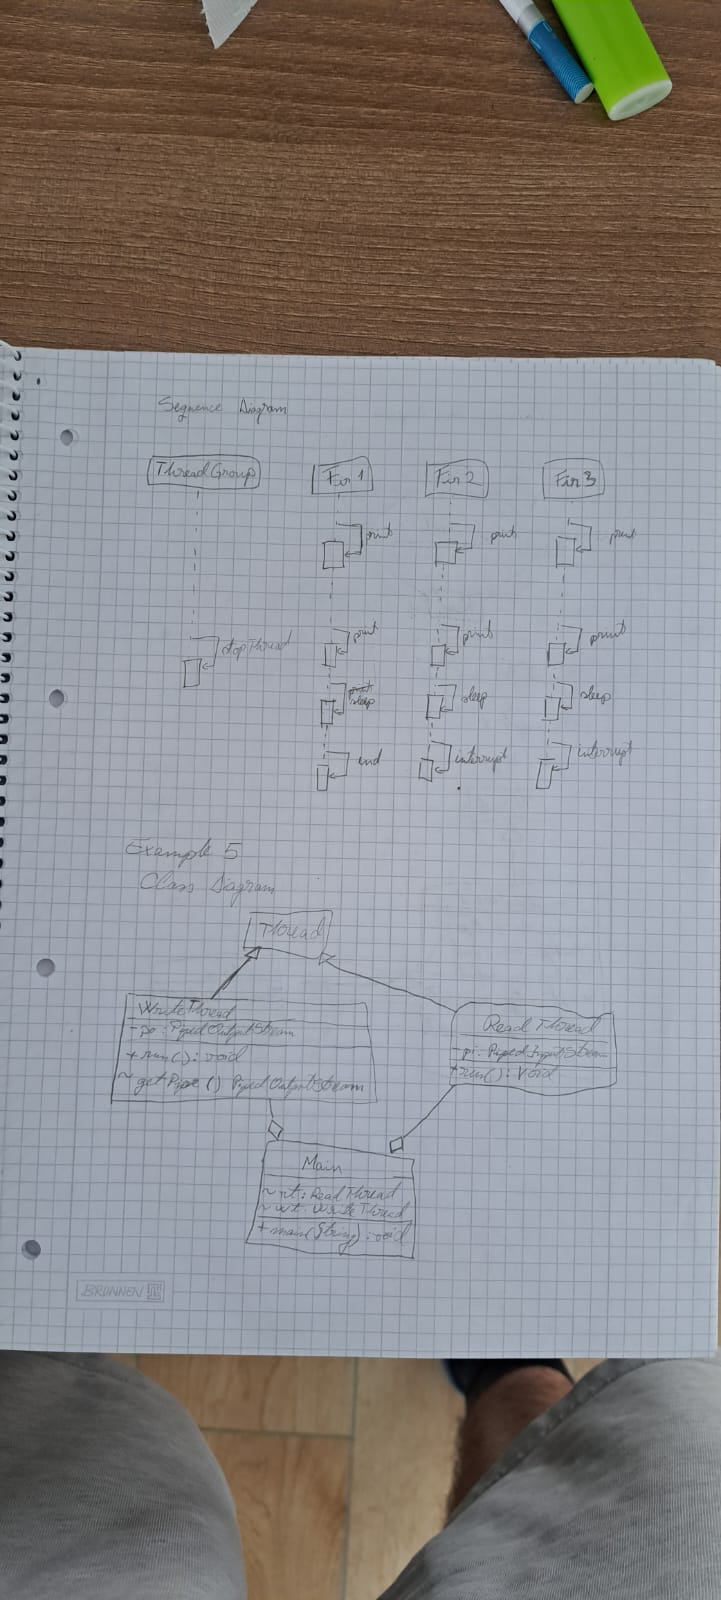 Sequence Diagram
ThreadGroup Fir 1 Fir 2 Fir 3
print print print
stopThread print print print
print
sleep sleep sleep
end interrupt interrupt
Example 5
Class Diagram
Thread
WriteThread
- po: PipedOutputStream
+ run(): void
~ getPipe() PipedOutputStream
ReadThread
- pi: PipedInputStream
+ run(): void
Main
~ rt: ReadThread
~ wt: WriteThread
+ main(String): void
BRUNNEN